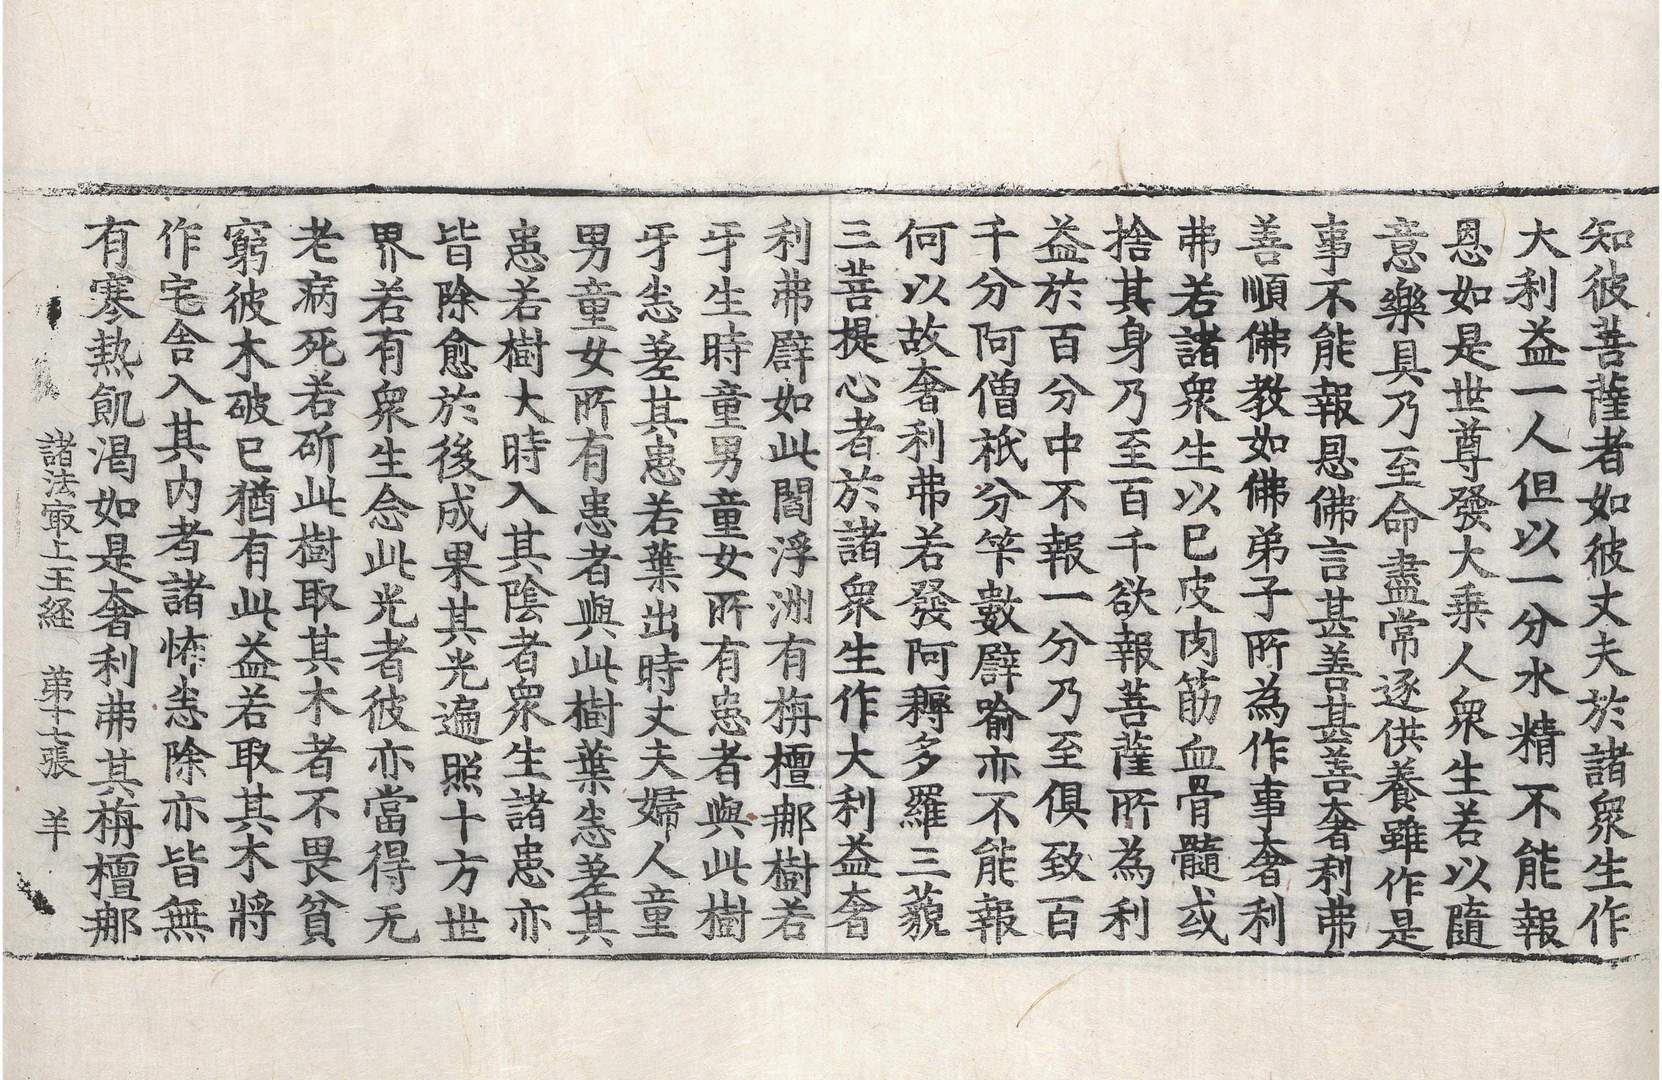 知彼菩薩者如彼丈夫於諸衆生作
大利益一人但以一分水精不能報
恩如是世尊發大乗人衆生若以隨
意樂具乃至命盡常逐供養雖作是
事不能報恩佛言甚善甚善奢利弗
善順佛教如佛弟子所為作事奢利
弗若諸衆生以已皮肉筋血骨髓或
捨其身乃至百千欲報菩薩所為利
益於百分中不報一分乃至俱致百
千分阿僧祇分竿數譬喻亦不能報
何以故奢利弗若發阿耨多羅三藐
三菩提心者於諸衆生作大利益奢
利弗譬如此閻浮洲有栴檀那樹若
牙生時童男童女所有患者與此樹
牙恙差其患若葉出時丈夫婦人童
男童女所有患者與此樹葉恙差其
患若樹大時入其陰者衆生諸患亦
皆除愈於後成果其光遍照十方世
界若有衆生念此光者彼亦當得无
老病死若斫此樹取其木者不畏貧
窮彼木破已猶有此益若取其木將
作宅舎入其内者諸怖恙除亦皆無
有寒熱飢渇如是奢利弗其栴檀那
諸法㝡上王経 第十七張 羊